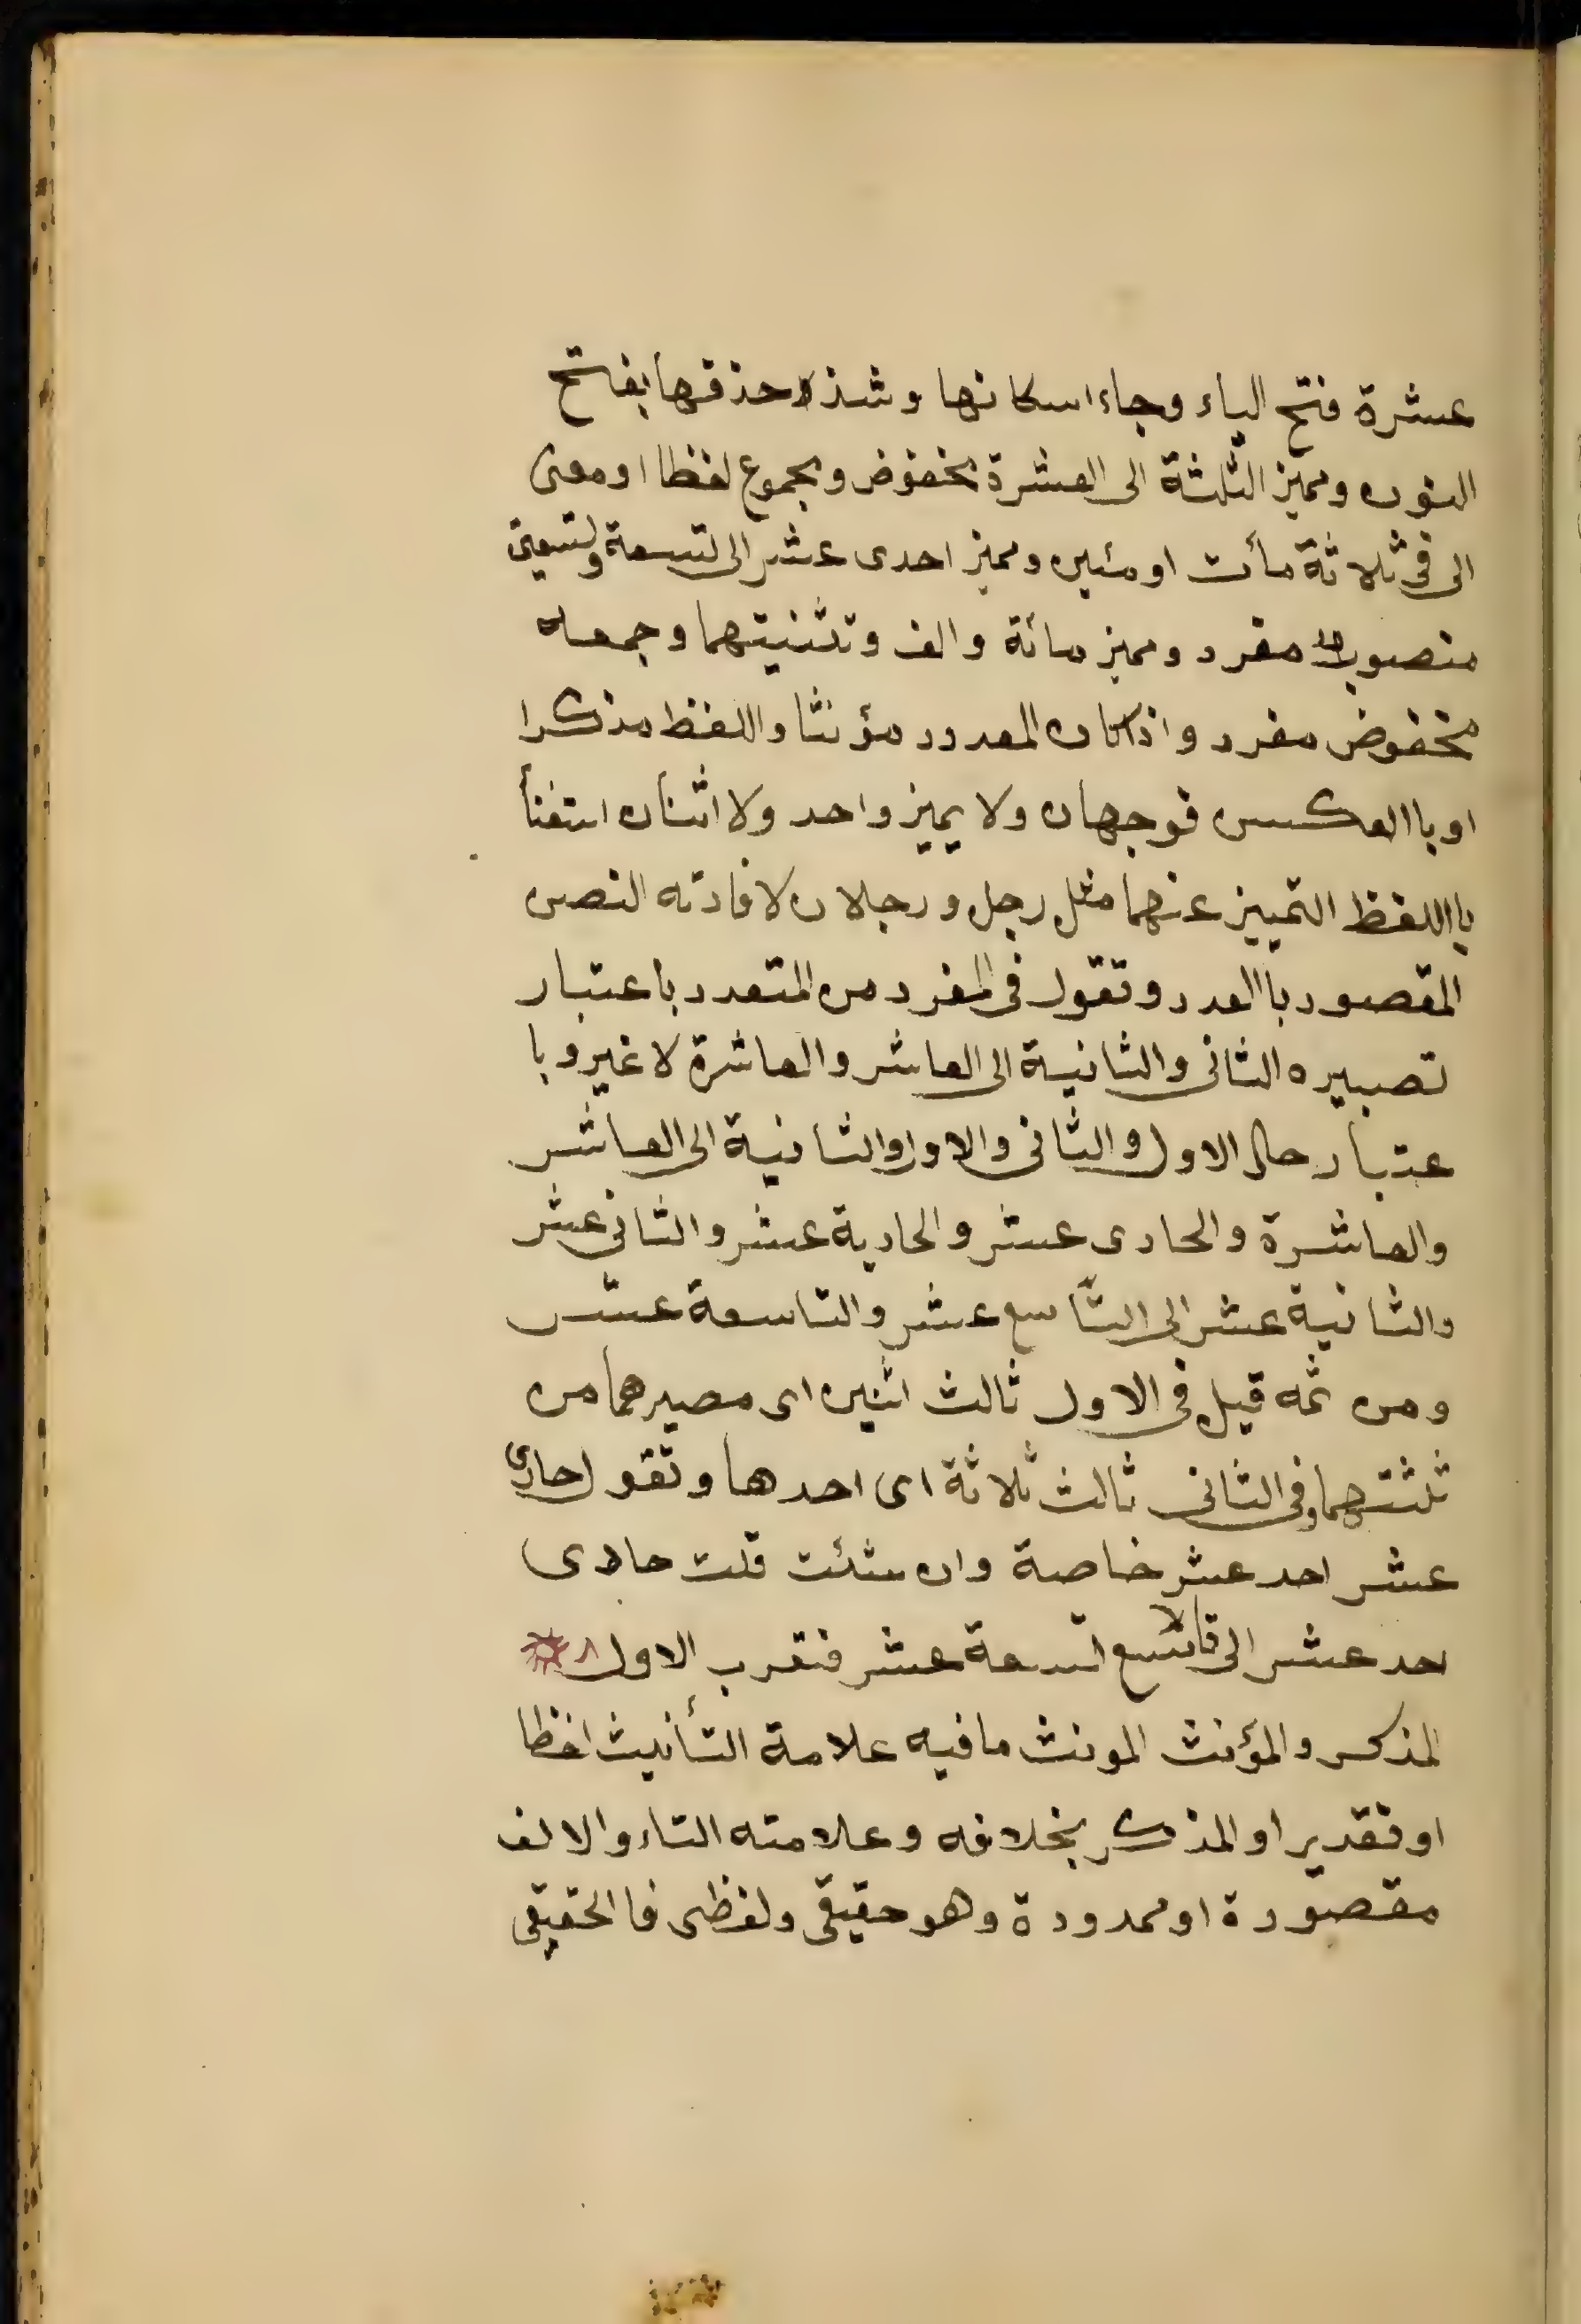 عشرة فتح الياء وجاء اسكانها وشذ حذفها بفتح
النون ومميز الثلثة الى العشرة مخفوض ومجموع لفظا او معنى
الى فى ثلاثة مأت او مئين ومميز احدى عشر الى تسعة وتسعين
منصوب مفرد ومميز مائة والف وتثنيتهما وجمعه
مخفوض مفرد واذا كان المعدود مؤنثا واللفظ مذكرا
او باالعكس فوجهان ولا يميز واحد ولا اثنان استغنأ
بااللفظ التمييز عنهما مثل رجل ورجلان لافادته النصص
المقصود باالعدد وتقول فى المفرد من المتعدد باعتبار
تصييره الثانى والثانية الى العاشر والعاشرة لا غير وبا
عتبار حال الاول والثانى والاول والثانية الى العاشر
والعاشرة والحادى عشر والحادية عشر والثانى عشر
والثانية عشر الى التاسع عشر والتاسعة عشر
ومن ثمه قيل فى الاول ثالث اثنين اى مصيرهما من
ثلثتهما وفى الثانى ثالث ثلاثة اى احدها وتقول حادى
عشر احد عشر خاصة وان شئت قلت حادى
احد عشر الى تاسع تسعة عشر فتعرب الاول
المذكر والمؤنث المونث مافيه علامة التأنيث لفظا
او تقديرا والمذكر بخلافه وعلامته التاء والالف
مقصورة او ممدودة وهو حقيقى ولفظى فاالحقيقى